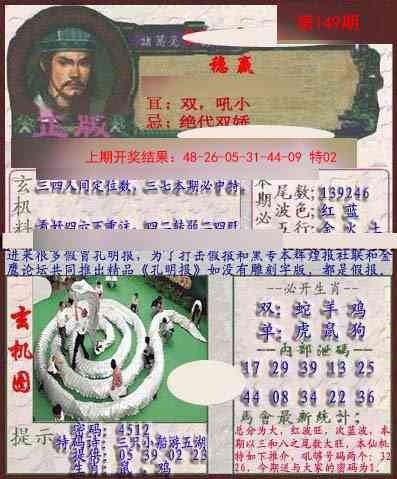 第149期
諸葛亮
稳赢
宜：双，吼小
忌：绝代双娇
正版
上期开奖结果：48-26-05-31-44-09 特02
玄机料
三四人同定位数，三七本期必中特。
本期必
尾数：139246
波色：红 蓝
五行：金 火 土
进来很多假冒孔明报，为了打击假报和黑专本辉煌报社联和金
鹰论坛共同推出精品《孔明报》如没有雕刻字版，都是假报。
玄机图
--必开生肖--
双：蛇 羊 鸡
单：虎 鼠 狗
内部泄码
17 29 39 13 25
44 08 34 22 36
馬會最新統计：
总分为大，红波旺，次蓝波，本
期以三和八之尾数大旺，本仙机
特如下推介，吼够号码两个：32
26，今期送与大家的密码为1.
提示
密码：4512
特码诗：三只小船游五湖
提供：05 39 02 23
生肖：鼠．鸡